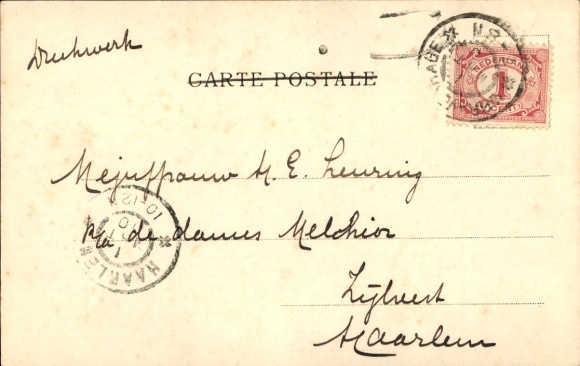 Drukwerk
CARTE POSTALE
NEDERLAND
1
CENT
Mejuffrouw H. E. Leuring
p/a de dames Melchior
Zijlvest
Haarlem
HAARLEM
10-12